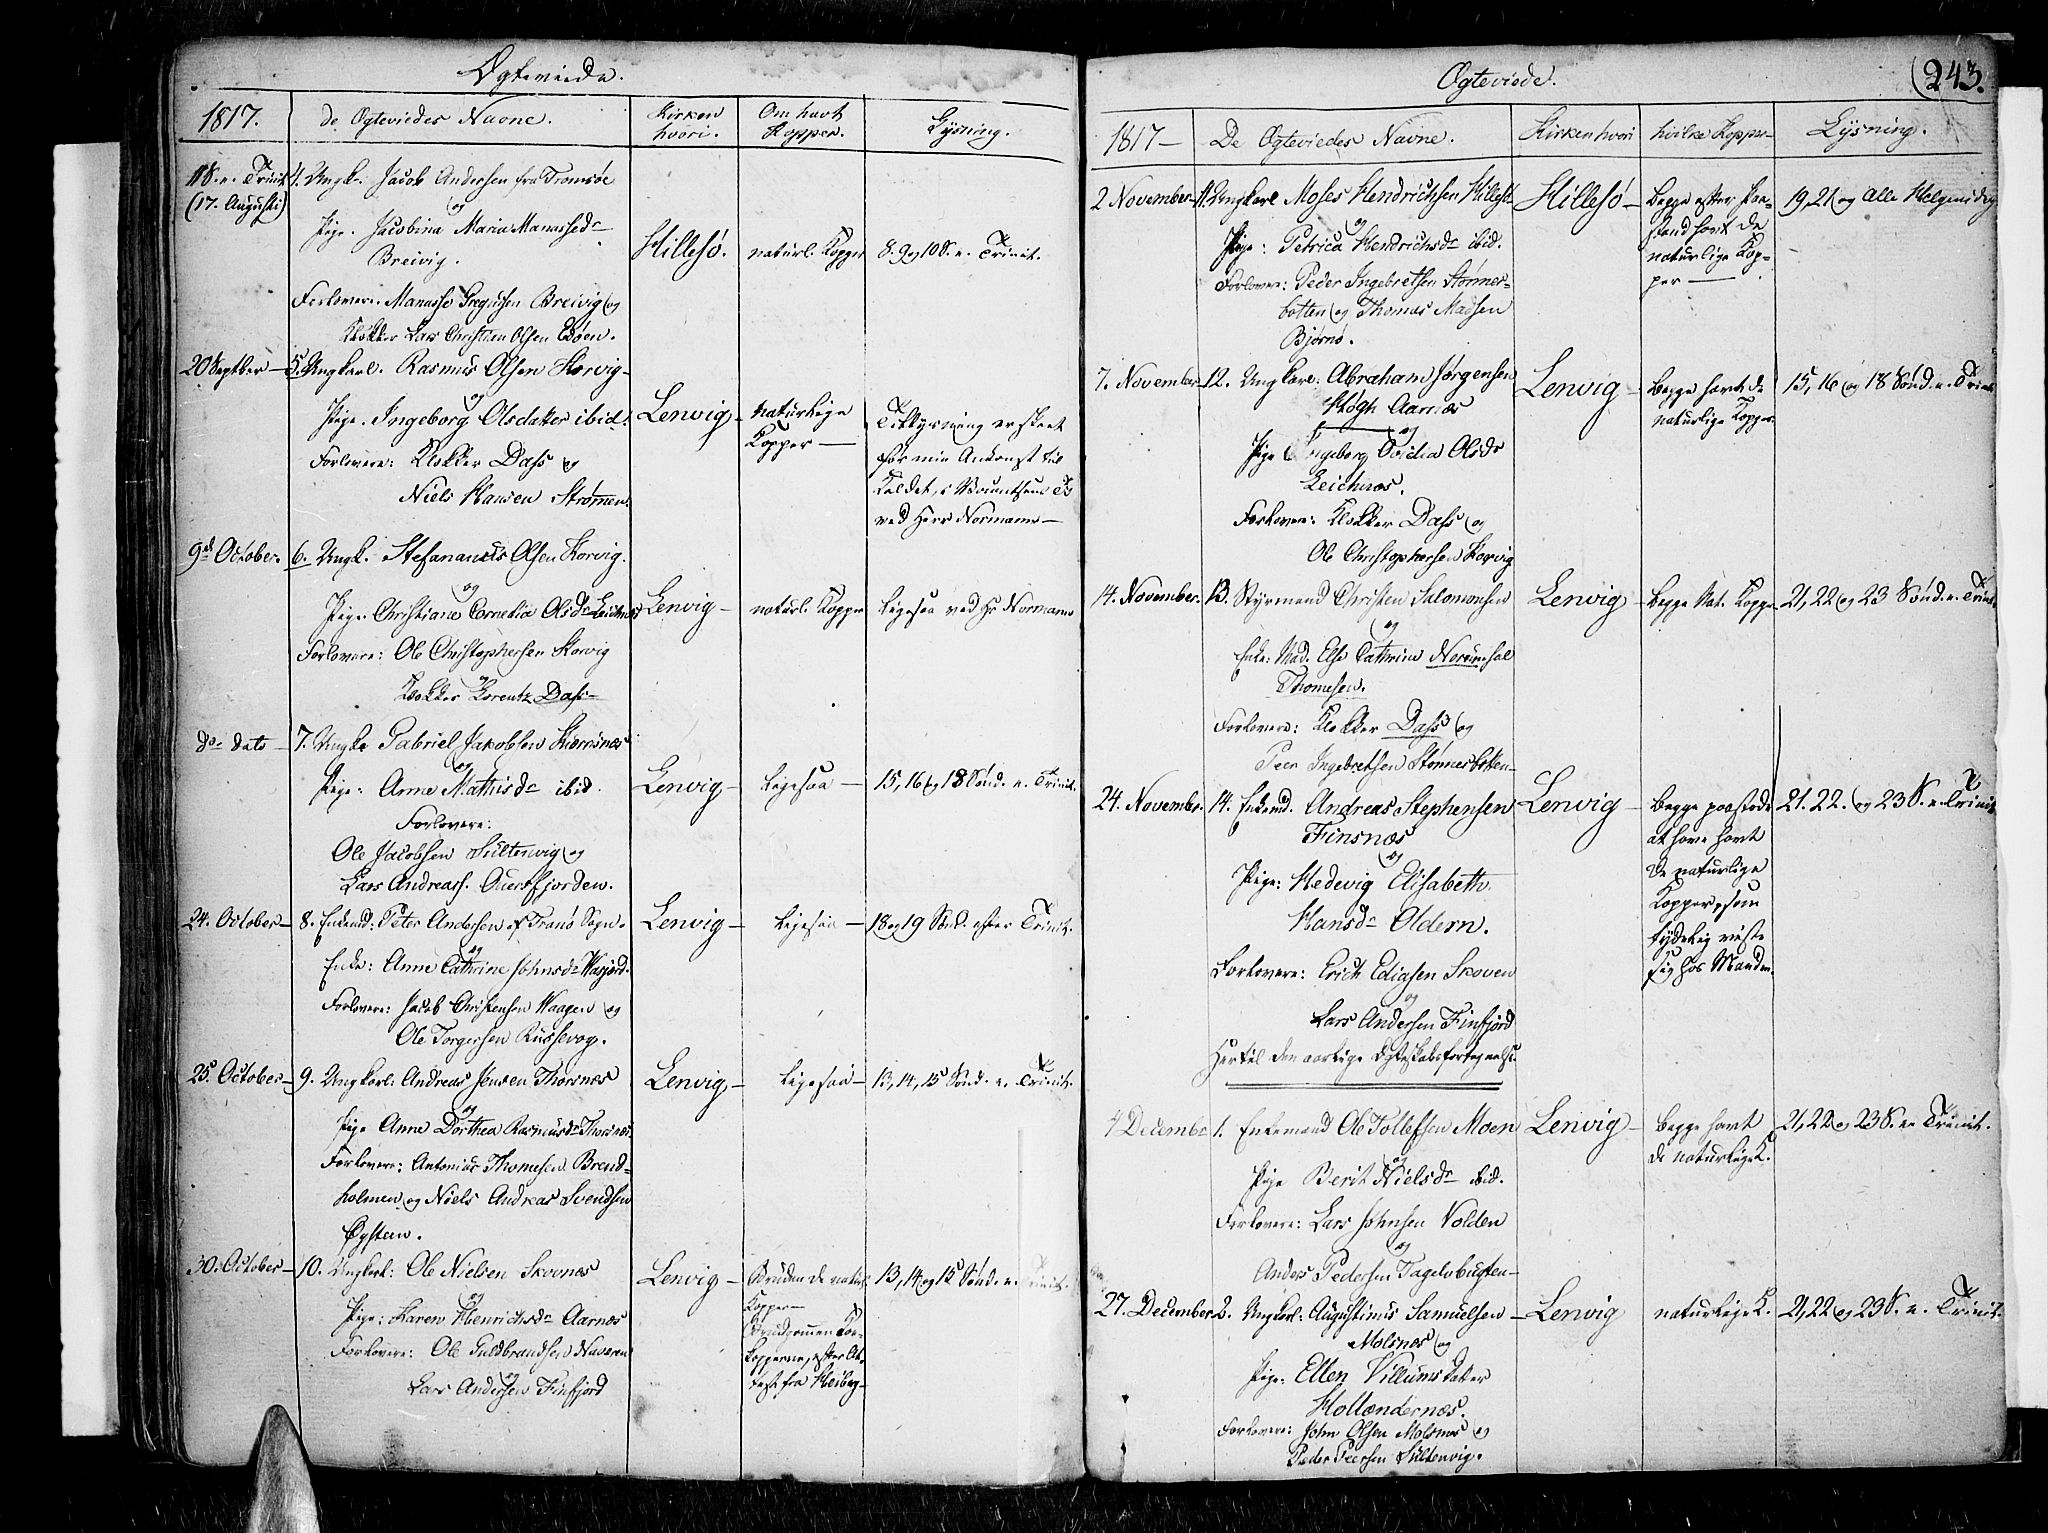 Ogteviede.
1817.
de Ogteviedes Navne.
Kirken hvori.
Om havt Kopper.
Lysning.
11 S. e. Trinit. (17. Augusti)
4. Ungk. Jacob Andersen fra Tromsöe
og
Pige. Jacobina Maria Manassedr
Breivig.
Forlovere. Manasse Gregusen Breivig og
Klokker Lars Christian Olsen Eböen.
Hillesö.
naturl. Kopper
8. 9 og 10 S. e. Trinit.
20 Septber
5. Ungkarl. Rasmus Olsen Korvig
og
Pige. Ingeborg Olsdatter ibid.
Forlovere: Klokker Dass og
Niels Hansen Strømmen
Lenvig
Naturlige
Kopper
Tillysning er skeet
før min Ankomst til
Kaldet,
ved Herr Normann
9de October.
6. Ungk. Stefananus Olsen Korvig.
og
Pige: Christiane Cornelia Olsdr Leiknes
Forlovere: Ole Christophersen Korvig
og
Klokker Lorentz Dass
Lenvig
naturl. Kopper
Ligesaa ved Hr Normann
do dato
7. Ungka Gabriel Jakobsen Kiernsnes
og
Pige: Anne Mathisdr ibid.
Forlovere:
Ole Jacobsen Sultenvig og
Lars Andreass. Quertfjorden.
Lenvig
Ligesaa
15, 16 og 18 Sönd. e. Trinit.
24. October
8. Enkemd: Peter Andersen af Tranö Sogn.
og
Enke: Anne Cathrine Johnsdr Wagjord.
Forlovere: Jacob Christensen Waagen og
Ole Torgersen Russevog.
Lenvig
Ligesaa
18 og 19 Sönd. efter Trinit.
25. October
9. Ungkarl: Andreas Jensen Thorsnes
og
Pige Anne Dorthea Rasmusdr Thorsnes
Forlovere: Antonius Thomesen Brend-
holmen og Niels Andreas Svendsen
Øysteen.
Lenvig
Ligesaa
13, 14, 15 Sönd. e. Trinit.
30. October
10. Ungkarl: Ole Nielsen Skovnes
og
Pige: Karen Henrichsdr Aarnes
Forlovere: Ole Guldbrandsen Naveren
og
Lars Andersen Finfjord
Lenvig
Bruden de naturl.
Kopper
Brudgommen Koe-
kopperne, efter At-
test fra Heiberg
13, 14 og 15 Sönd. e. Trinit.
Ogteviede.
(243.
1817
De Ogteviedes Navne.
Kirken hvori
hvilke Kopper
Lysning.
2 November
11. Ungkarl Moses Hendrichsen Hillesö
og
Pige: Petrica Hendrichsdr ibid.
Forlovere: Peder Ingebretsen Stønnes-
botten og Thomas Madsen
Bjørnö.
Hillesö
Begge efter Paa-
stand havt de
naturlige Kop-
per
19, 21 og Alle Helgensdag
7. November
12. Ungkarl: Abraham Jørgensen
Högh Aarnes
og
Pige Ingeborg Ovidia Olsdr
Leicknes.
Forlovere: Klokker Dass og
Ole Christophersen Korvig
Lenvig
Begge havt de
naturlige Kopper.
15, 16 og 18 Sönd. e. Trinit.
14. November
13. Styrmand Christen Salomonsen
og
Enke: Mad. Else Cathrine Norumsal
Thomesen.
Forlovere: Klokker Dass og
Peer Ingebretsen Stønnesbotten
Lenvig
Begge Nat. Kopper
21, 22 og 23 Sönd. e. Trinit.
24. November
14. Enkemd. Andreas Stephensen
Finsnæs
og
Pige: Hedevig Elisabeth
Hansdr Oldern.
Forlovere: Erich Ediasen Skoven
og
Lars Andersen Finfjord
Hertil den aarlige Ogteskabsfortegnelse.
Lenvig
Begge paastode
at have havt
de naturlige
Kopper, som
tydelig viste
sig hos Manden.
21. 22. og 23 S. e. Trinit.
4 Decembr
1. Enkemand Ole Tollefsen Moen
og
Pige Berit Nielsdr ibid.
Forlovere: Lars Johnsen Volden
og
Anders Pedersen Fagelvbugten
Lenvig
Begge havt
de naturlige K.
21, 22 og 23 S. e. Trinit.
27. December
2. Ungkarl: Augustinus Samuelsen
Molsnes og
Pige: Ellen Villumsdatter
Hollændernæs.
Forlovere: John Olsen Molsnes og
Peder Peersen Sultenvig.
Lenvig
naturlige K.
21, 22 og 23 S. e. Trinit.